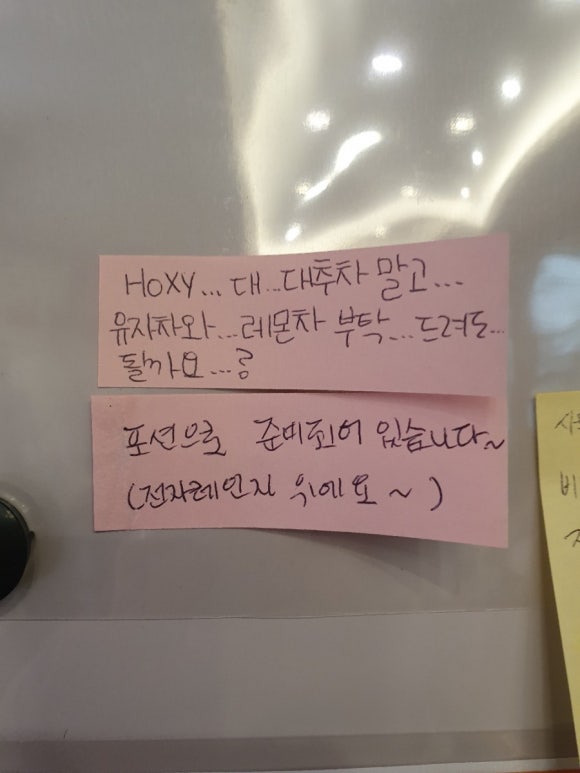 HOXY... 대...대추차 말고...
유자차와...레몬차 부탁...드려도...
될까요...?
포션으로 준비되어 있습니다~
(전자레인지 위에요~)
비